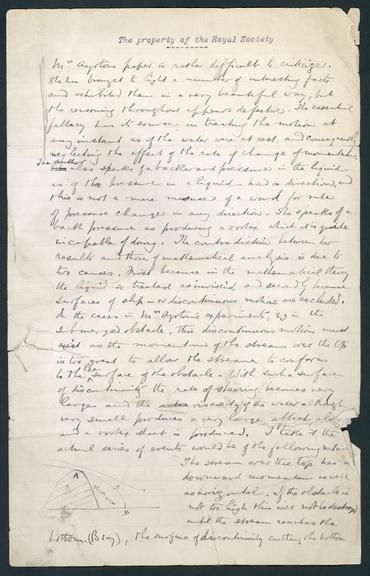 The property of the Royal Society
Mrs Ayrtons paper is rather difficult to criticize.
She has brought to light a number of interesting facts
and exhibited them in a very beautiful way, but
the reasoning throughout appears defective. The essential
fallacy has its source in treating the motion at
any instant as if the water were at rest, and consequently
neglecting the effect of the rate of change of momentum.
The author also speaks of a backward pressure in the liquid
as if the pressure in a liquid had a direction, and
this is not a mere misuse of a word for rate
of pressure change in any direction. She speaks of a
back pressure as producing a vortex which it is quite
incapable of doing. The contradiction between her
results and those of mathematical analysis is due to
two causes. First because in the mathematical theory
the liquid is treated as inviscid and secondly because
surfaces of slip – or discontinuous motion are excluded.
In the cases in Mrs Ayrton's experiments, eg in the
submerged obstacle, this discontinuous motion must
exist as the momentum of the stream over the top
is too great to allow the stream to conform
to the lee surface of the obstacle. With such a surface
of discontinuity the rate of shearing becomes very
large and the viscosity of the water although
very small produces a very large effect
and a vortex sheet is produced. I take it the
actual series of events would be of the following nature
The stream over the top has a
downward momentum as well
as horizontal. If the obstacle is
not too high this will not be destroyed
until the stream reaches the
bottom. (B say), the surface of discontinuity cutting the bottom
A
B